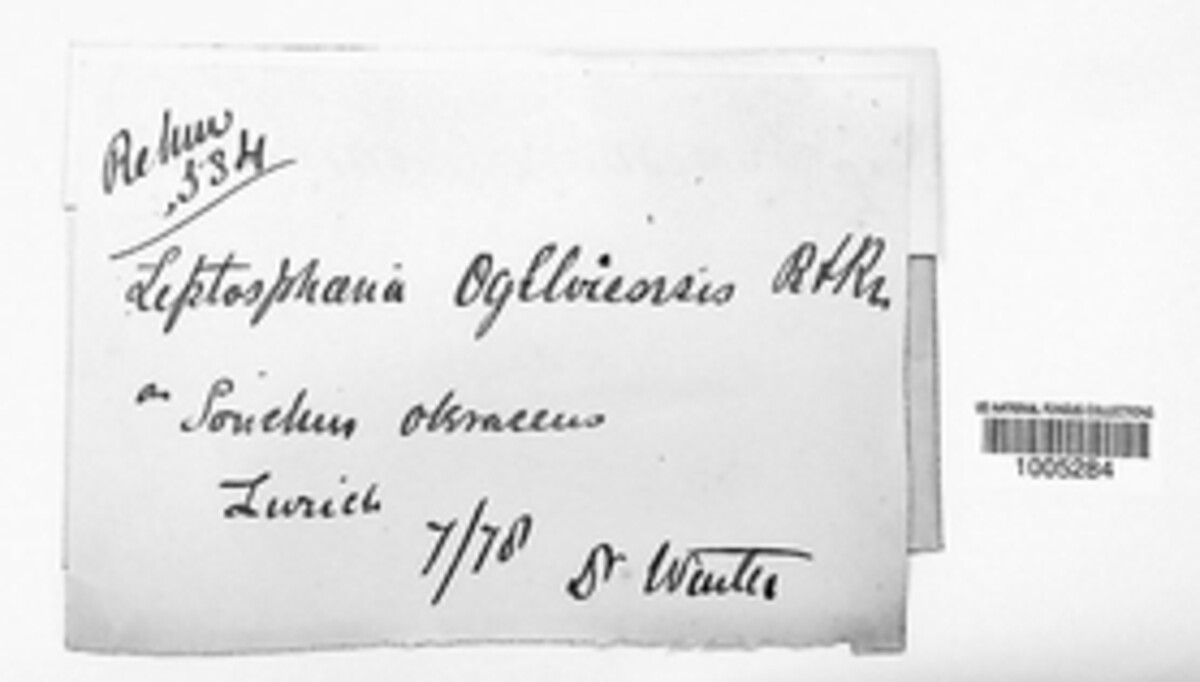 Rehm
534
Leptosphæria Ogilviensis B+Br.
on Sonchus oleraceus
Zurich
7/78 Dr Winter
US NATIONAL FUNGUS COLLECTIONS
1005284